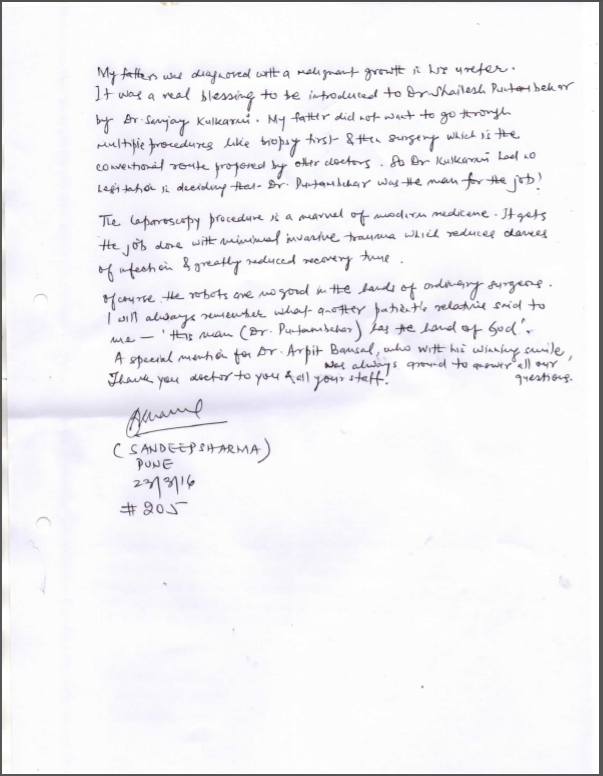 My father was diagnosed with a malignant growth in his ureter.
It was a real blessing to be introduced to Dr. Shailesh Puntambekar
by Dr. Sanjay Kulkarni. My father did not want to go through
multiple procedures like biopsy first & then surgery which is the
conventional route proposed by other doctors. So Dr Kulkarni had no
hesitation in deciding that Dr. Puntambekar was the man for the job!
The laparoscopy procedure is a marvel of modern medicine. It gets
the job done with minimal invasive trauma which reduces chances
of infection & greatly reduced recovery time.
Ofcourse the robots are no good in the hands of ordinary surgeons.
I will always remember what another patient's relative said to
me – 'this man (Dr. Puntambekar) has the hand of God'.
A special mention for Dr. Arpit Bansal, who with his winning smile,
was always around to answer all our
questions.
Thank you doctor to you & all your staff!
(SANDEEP SHARMA)
PUNE
23/3/16
# 205